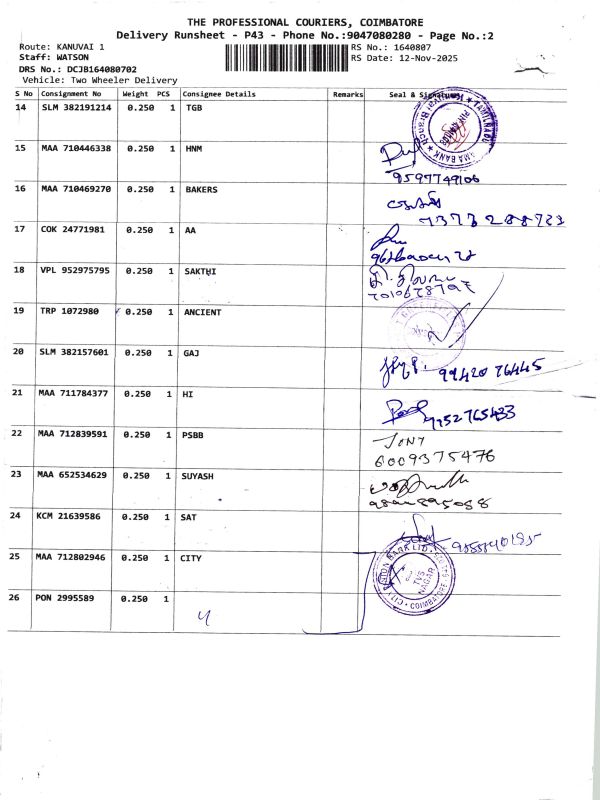 THE PROFESSIONAL COURIERS, COIMBATORE
Delivery Runsheet - P43 - Phone No.:9047080280 - Page No.:2
Route: KANUVAI 1 RS No.: 1640807
Staff: WATSON RS Date: 12-Nov-2025
DRS No.: DCJB164080702
Vehicle: Two Wheeler Delivery
S No Consignment No Weight PCS Consignee Details Remarks Seal & Signature
14 SLM 382191214 0.250 1 TGB
15 MAA 710446338 0.250 1 HNM
9597749106
16 MAA 710469270 0.250 1 BAKERS
7373288723
17 COK 24771981 0.250 1 AA
18 VPL 952975795 0.250 1 SAKTHI
19 TRP 1072980 0.250 1 ANCIENT
20 SLM 382157601 0.250 1 GAJ
99420 76445
21 MAA 711784377 0.250 1 HI
9952765433
22 MAA 712839591 0.250 1 PSBB
JONY
6009375476
23 MAA 652534629 0.250 1 SUYASH
24 KCM 21639586 0.250 1 SAT
25 MAA 712802946 0.250 1 CITY
TVS NAGAR
COIMBATORE
26 PON 2995589 0.250 1